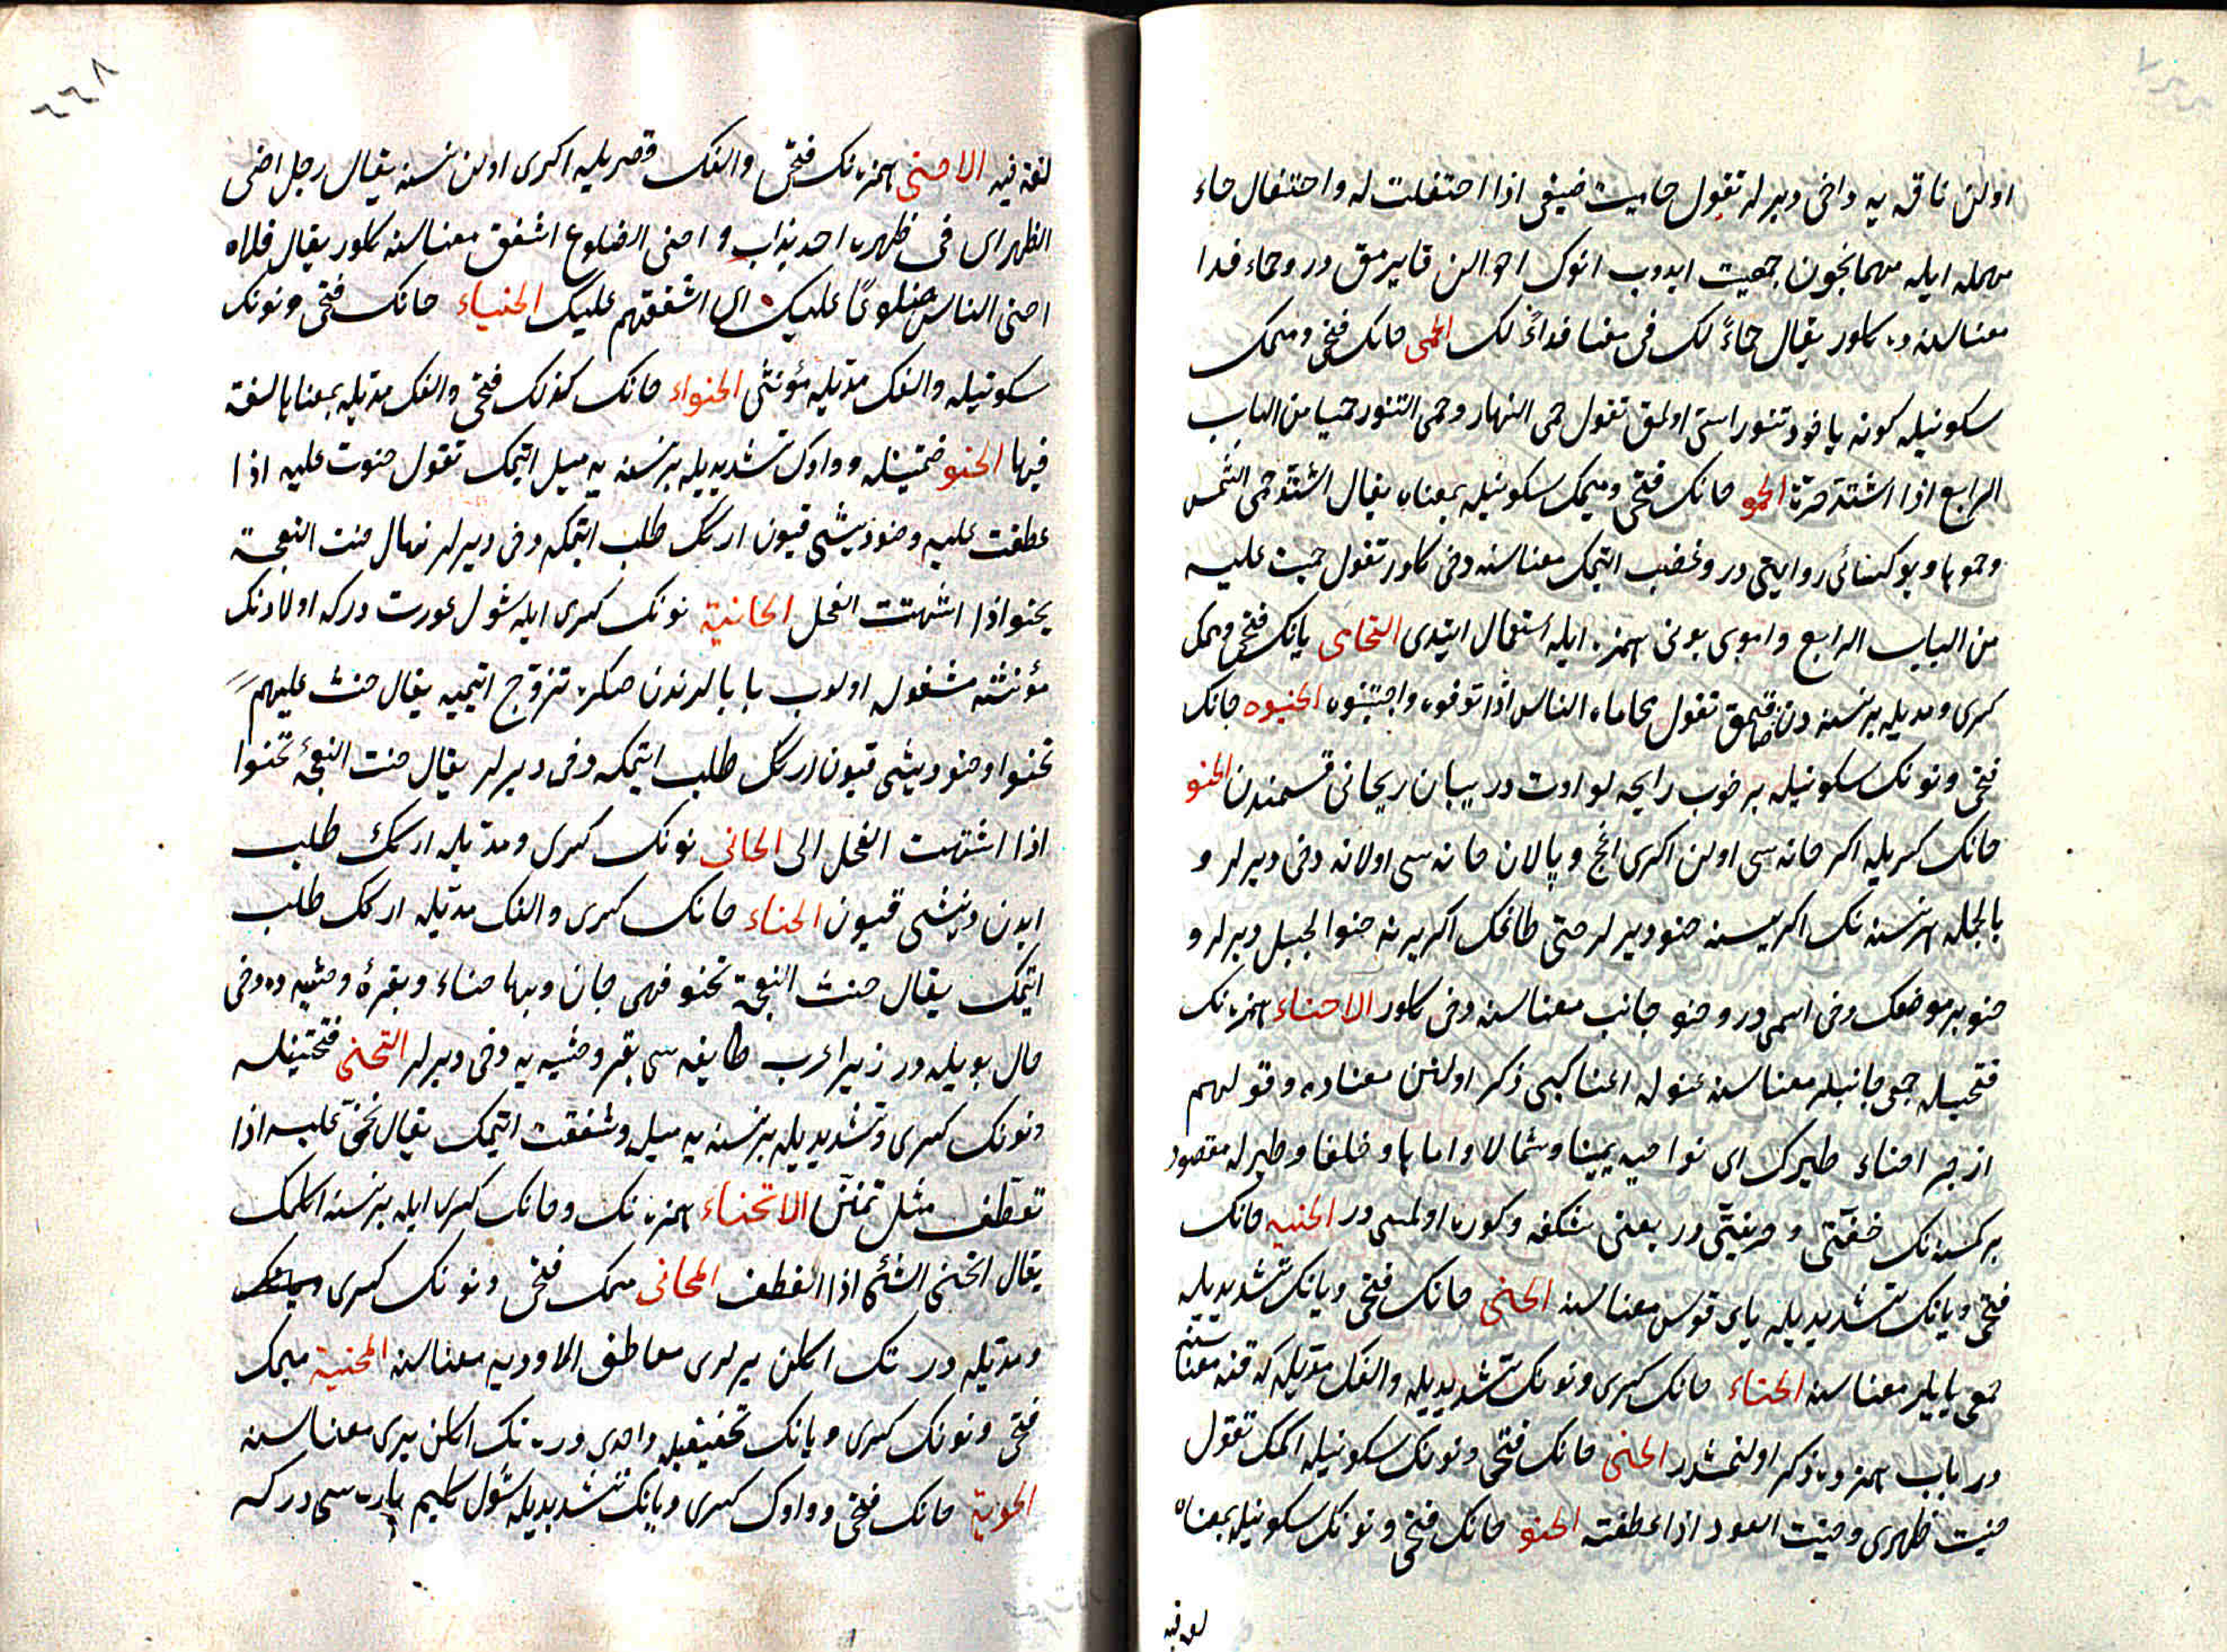 اولن ناقه يه داخى ديرلر تقول حاميت ضيفى اذا احتفلت له واحتفال حاء
مهمله ايله مهمانچون جمعيت ايدوب انوك احوالن قايرمق در وحماء فدا
معناسنه ده كلور يقال حماءً لك فى معنا فداءً لك الحمى حانك فتحى وميمك
سكونيله كونه ياخود تنور استى اولمق تقول حمى النهار وحمى التنور حميا من الباب
الرابع اذا اشتد حره الحمو حانك فتحى وميمك سكونيله بمعناه يقال اشتد حمى الشمس
وحموها وبو كسائى روايتى در وغضب ايتمك معناسنه دخى كلور تقول حميت عليه
من الباب الرابع واموى بونى همزه ايله استعمال ايتدى التحامى يانك فتحى وميمك
كسرى ومديله برنسنه دن قچمق صاقنمق تقول تحاماه الناس اذا توقوه واجتنبوه الحنوه حانك
فتحى ونونك سكونيله بر خوب رايحه لو اوت در بيبان ريحانى قسمندن الحنو
حانك كسريله اكر خانه سى اولن اكرى اغج وپالان خانه سى اولانه دخى ديرلر و
بالجمله هر نسنه نك اكريسنه حنو ديرلر حتى طاغك اكرى يرنه حنو الجبل ديرلر و
حنو بر موضعك دخى اسمى در وحنو جانب معناسنه دخى كلور الاحناء همزه نك
فتحيله جمعى جانبلر معناسنه عنو له اعنا كبى ذكر اولنن معناده وقولهم
ازجر احناء طيرك اى نواحيه يمينا وشمالا واماما وخلفا وطيرله مقصود
بر كسنه نك خفتى وخفيفتى در يعنى شكفه وكوره اولمسى در الحنيه حانك
فتحى ويانك تشديديله ياى قوس معناسنه الحنى حانك فتحى ويانك تشديديله
جمعى يايلر معناسنه الحناء حانك كسرى ونونك تشديديله والفك مديله كه قنه معناسنه
در باب همزه ده ذكر اولنمشدر الحنى حانك فتحى ونونك سكونيله اكمك تقول
حنيت ظهرى وحنيت العود اذا عطفته الحنو حانك فتحى ونونك سكونيله بمعناه
لغه فيه
٦٦٨
لغة فيه الاحنى همزه نك فتحى والفك قصريله اكرى اولن نسنه يقال رجل احنى
الظهر اى فى ظهره احديداب واحنى الضلوع اشفق معناسنه كلور يقال فلان
احنى الناس ضلوعًا عليك اى اشفقهم عليك الحنياء حانك فتحى ونونك
سكونيله والفك مديله مؤنثى الحنواء حانك كذلك فتحى والفك مديله بمعناها لغة
فيها الحنو ضمتينله وواوك تشديديله برنسنه يه ميل ايتمك تقول حنوت عليه اذا
عطفت عليه وحنو ديشى قيون اركك طلب ايتمكه دخى ديرلر يقال حنت النعجة
يحنو اذا اشتهت الفحل الحانية نونك كسرى ايله شول عورت دركه اولادنك
مؤنثنه مشغول اولوب بابالرندن صكره تزوج ايتميه يقال حنت عليهم
تحنوا وحنو ديشى قيون اركك طلب ايتمكه دخى ديرلر يقال حنت النعجة تحنوا
اذا اشتهت الفحل الى الحانى نونك كسرى ومديله اركك طلب
ايدن ديشى قيون الحناء حانك كسرى والفك مديله اركك طلب
ايتمك يقال حنت النعجة تحنو فهى حان وبها حناء وبقرهٔ وحشيه ده دخى
حال بويله در زيرا عرب طايفه سى بقر وحشيه يه دخى ديرلر التحنى فتحتينله
ونونك كسرى وتشديديله برنسنه يه ميل وشفقت ايتمك يقال تحنى عليه اذا
تعطف مثل تحنن الانحناء همزه نك وحانك كسرى ايله برنسنه اكلمك
يقال انحنى الشئ اذا انعطف المحانى ميمك فتحى ونونك كسرى
ومديله دره نك اكلن يرلرى معاطف الاوديه معناسنه المحنية ميمك
فتحى ونونك كسرى ويانك تخفيفيله واحدى دره نك اكلن يرى معناسنه
الحوية حانك فتحى وواوك كسرى ويانك تشديديله شول كليم پاره سى دركه